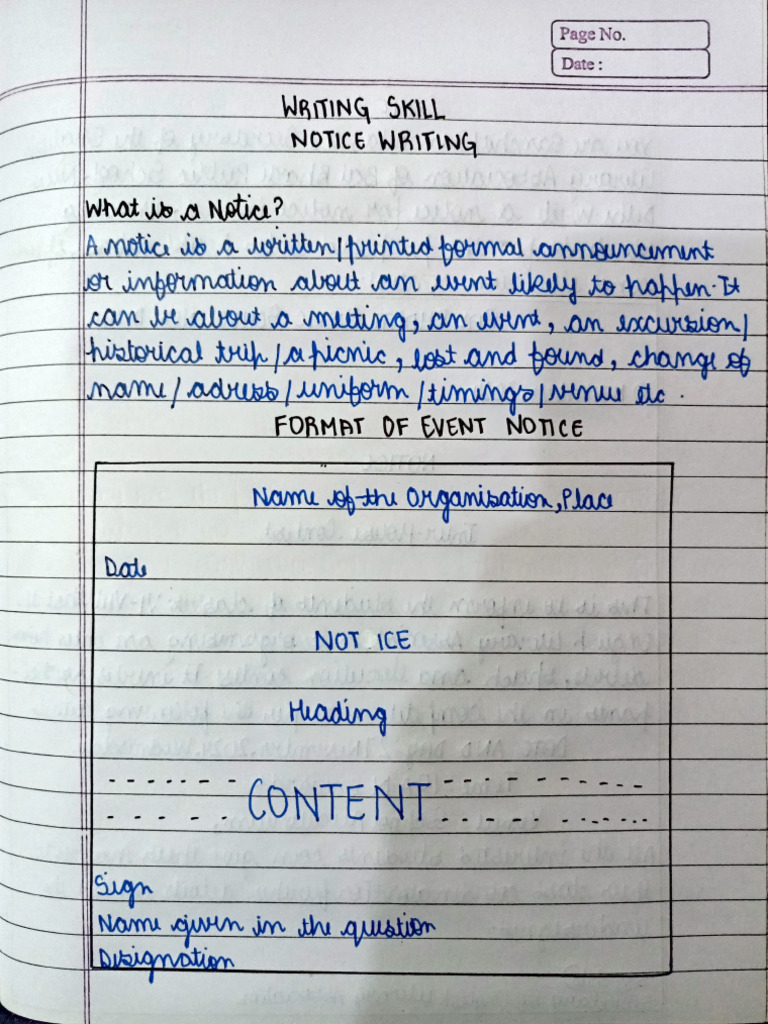 Page No.
Date :
WRITING SKILL
NOTICE WRITING
What is a Notice?
A notice is a written/printed formal announcement
or information about an event likely to happen. It
can be about a meeting, an event, an excursion/
historical trip/a picnic, lost and found, change of
name/adress/uniform/timings/venue etc.
FORMAT OF EVENT NOTICE
Name of the Organisation, Place
Date
NOTICE
Heading
CONTENT
Sign
Name given in the question
Designation